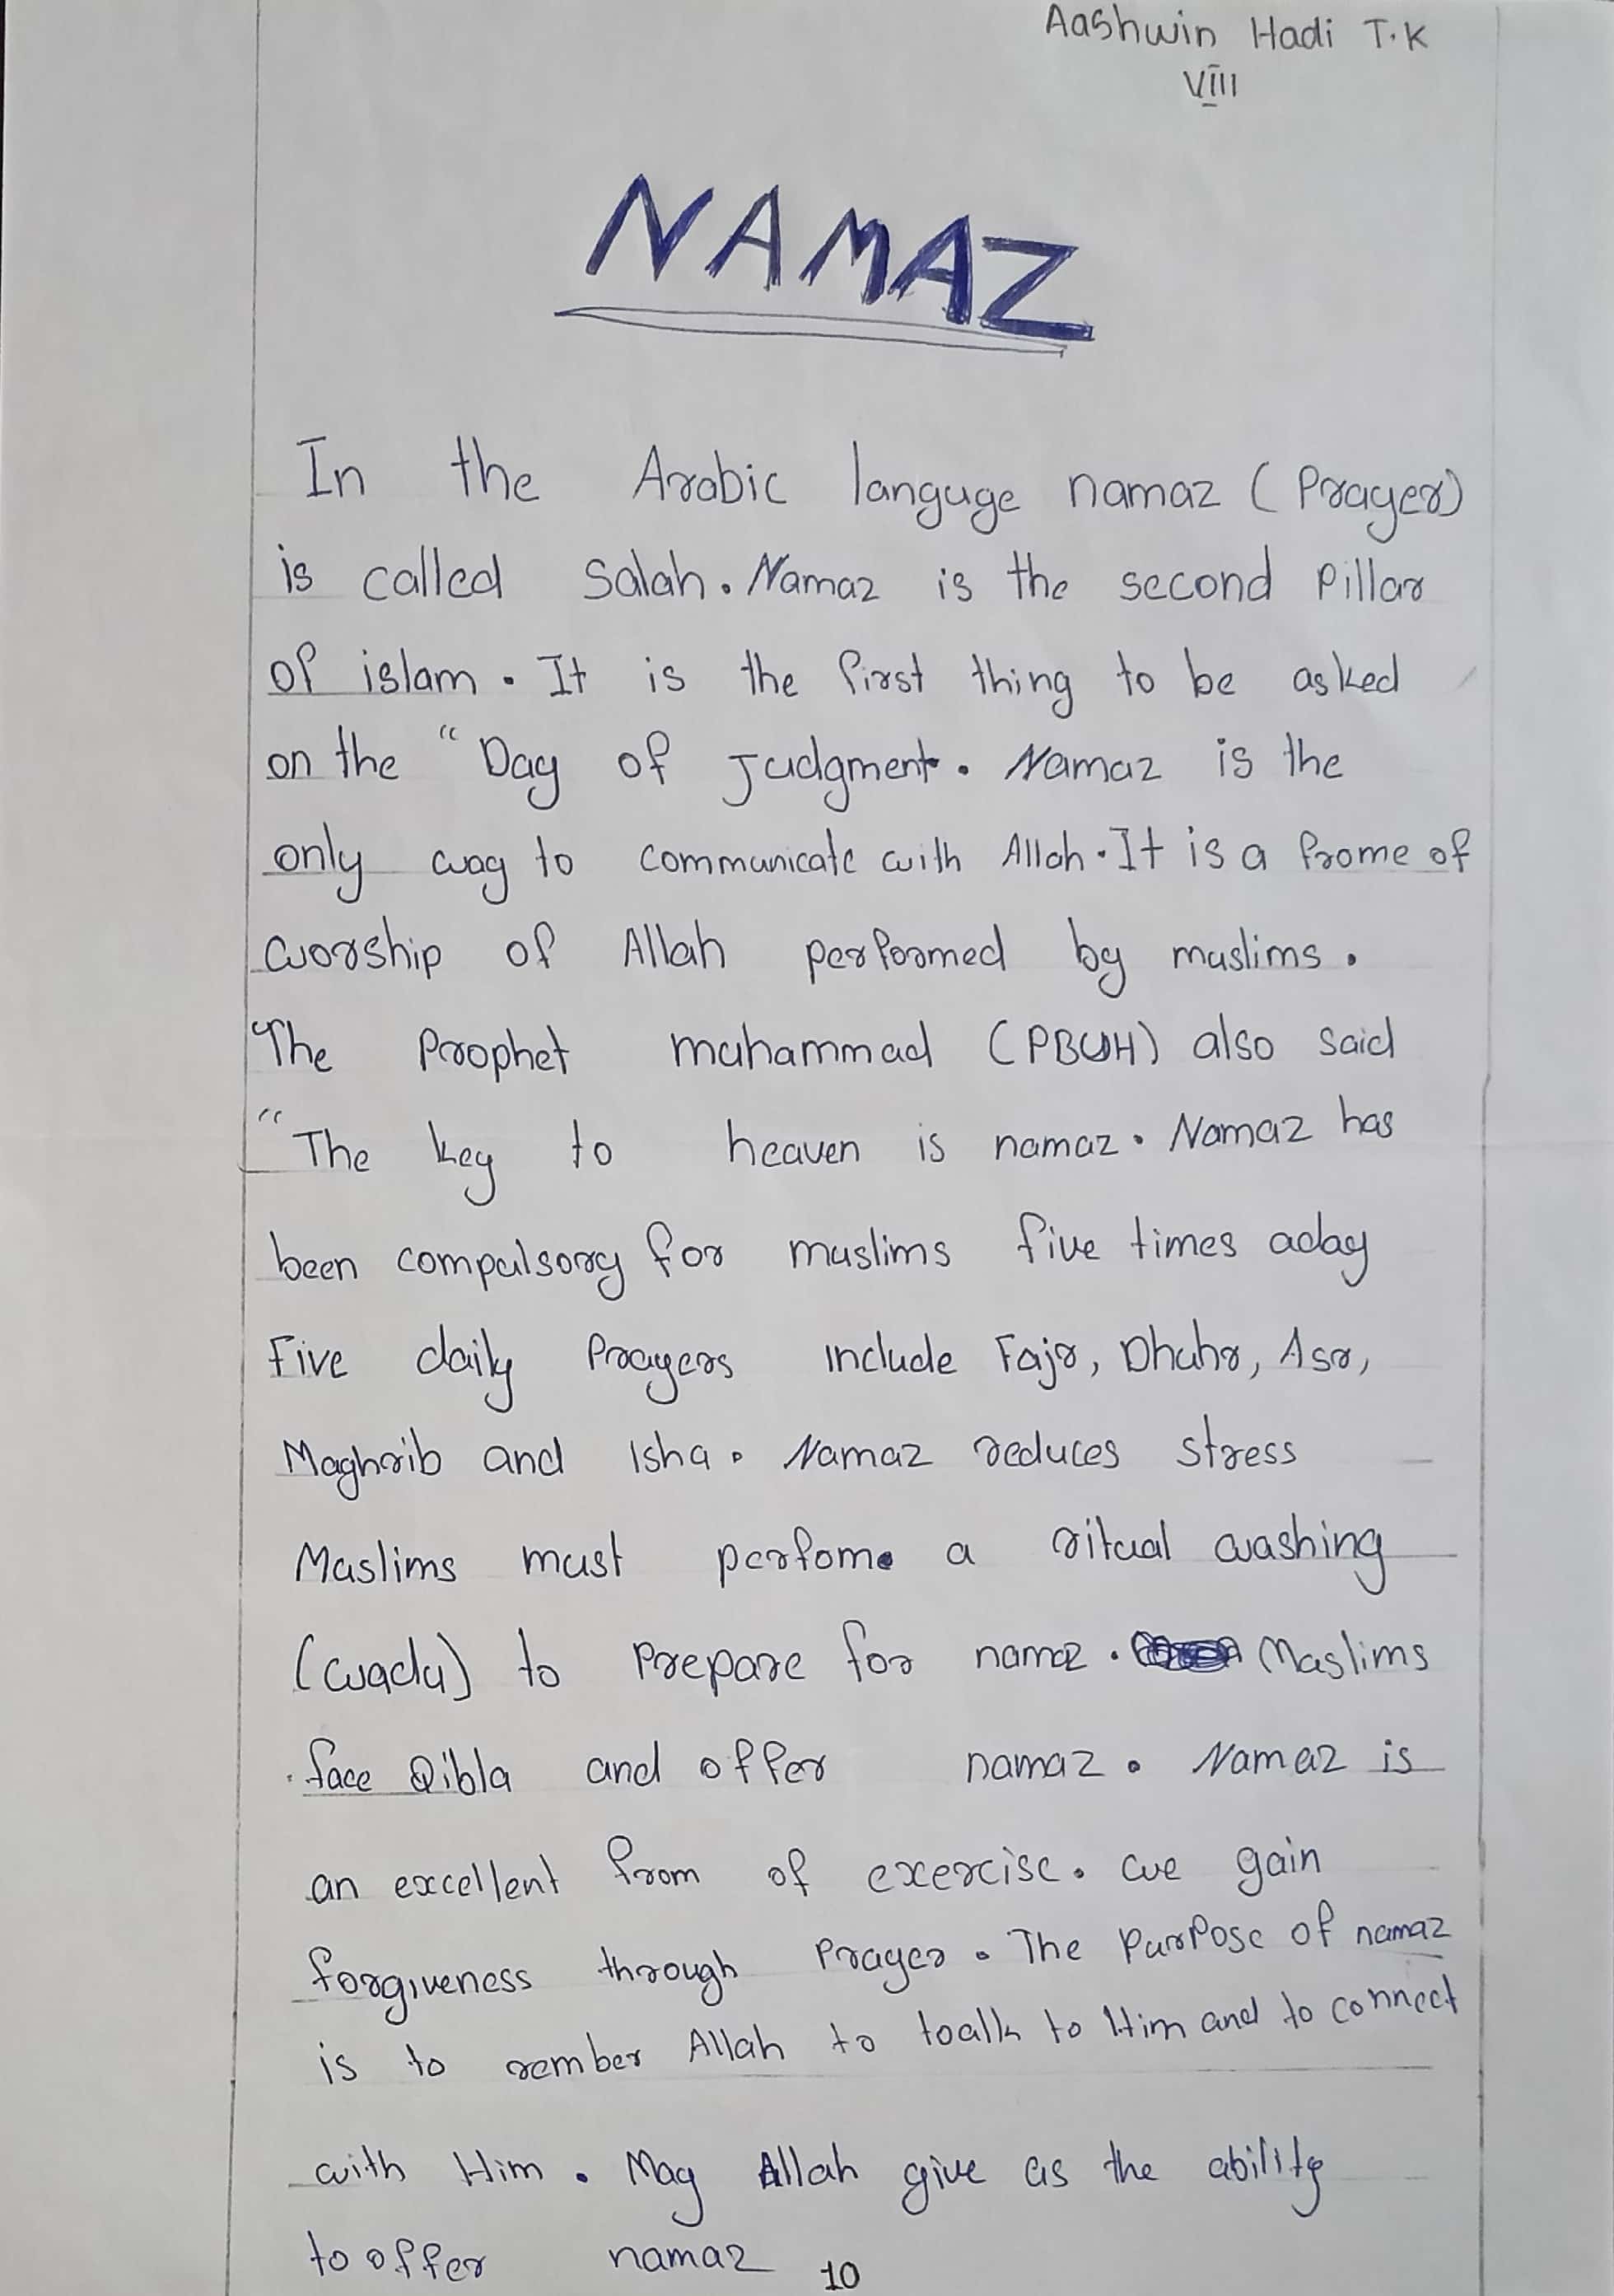 Aashwin Hadi T.K
VIII
NAMAZ
In the Arabic languge namaz (Prayer)
is called Salah. Namaz is the second Pillar
of islam. It is the first thing to be asked
on the "Day of Judgment. Namaz is the
only way to communicate with Allah. It is a frome of
worship of Allah performed by muslims.
The Prophet muhammad (PBUH) also said
"The key to heaven is namaz. Namaz has
been compulsory for muslims five times aday
Five daily Prayers include Fajr, Dhuhr, Asr,
Maghrib and Isha. Namaz reduces stress
Muslims must perfome a ritual washing
(wadu) to Prepare for namaz. Muslims
face Qibla and offer namaz. Namaz is
an excellent from of exercise. we gain
forgiveness through Prayer. The PurPose of namaz
is to rember Allah to toalk to Him and to connect
with Him. May Allah give us the ability
to offer namaz
10